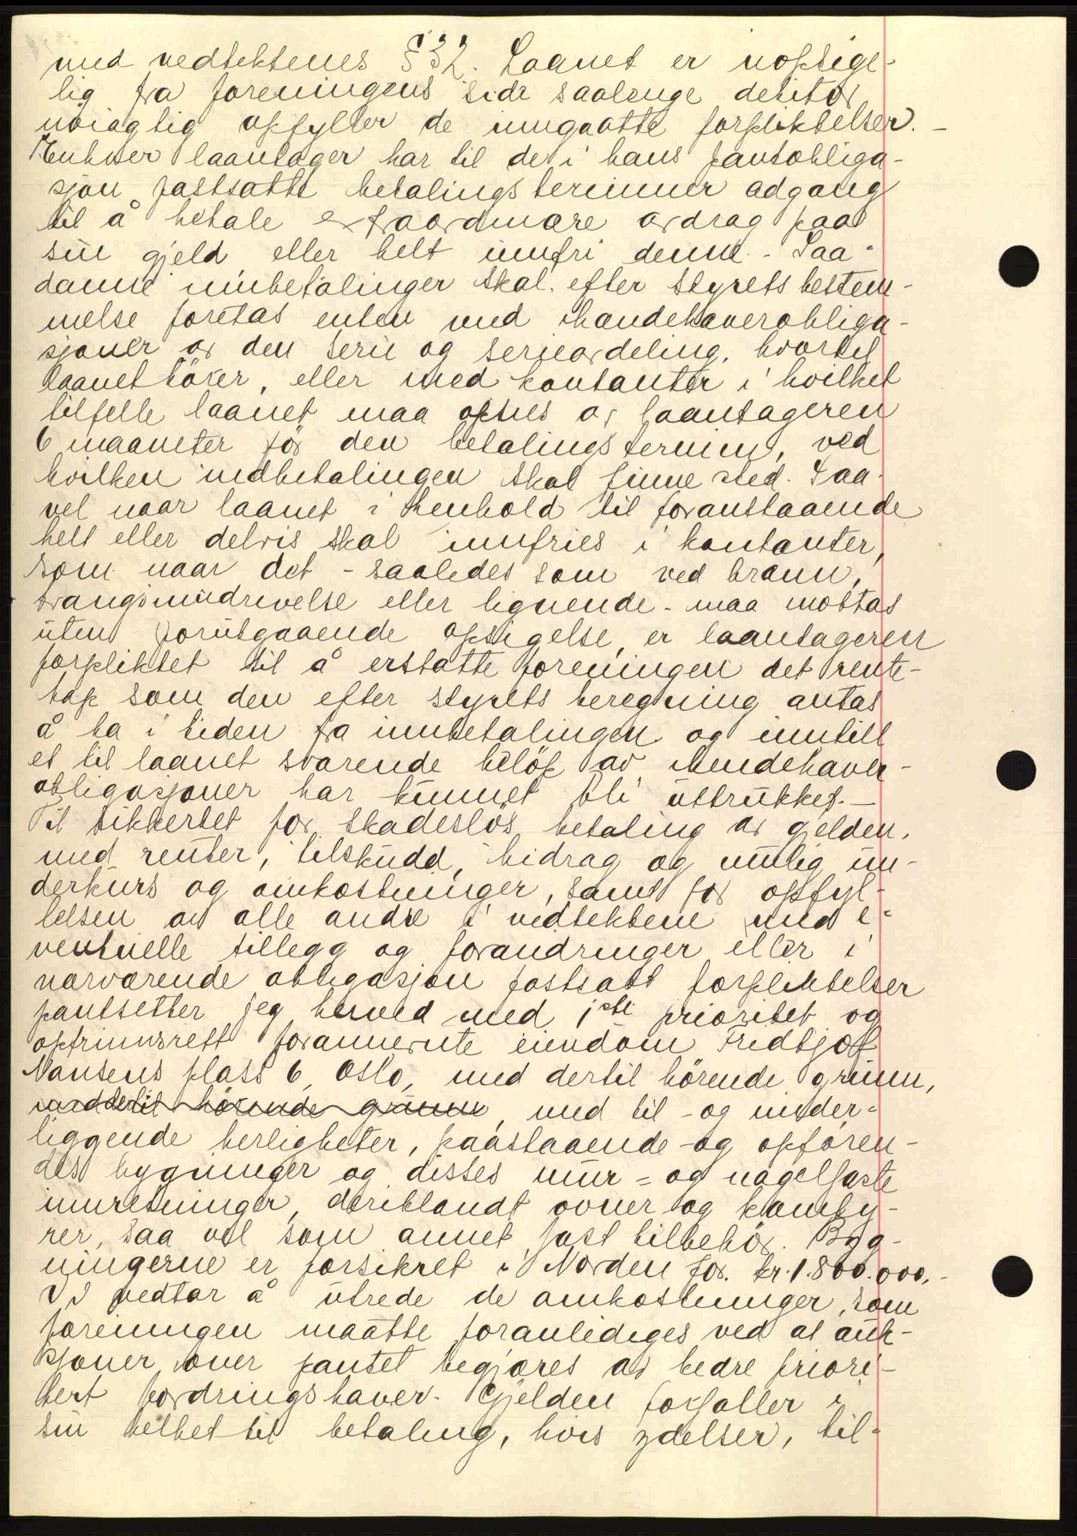 med vedtektenes § 32. Laanet er uopsige-
lig fra foreningens side saalenge debitor
nöiagtig opfyller de inngaatte forpliktelser. -
Enhver laantager har til de i hans pantobliga-
sjon fastsatte betalingsterminer adgang
til å betale extraordinære avdrag paa
sin gjeld eller helt innfri denne. - Saa-
danne innbetalinger skal efter styrets bestem-
melse foretas enten med ihandehaverobliga-
sjoner av den serie og serieavdeling, hvortil
laanet hörer, eller med kontanter i hvilket
tilfelle laanet maa opsies av laantageren
6 maaneter för den betalingstermin, ved
hvilken indbetalingen skal finne sted. Saa-
vel naar laanet i henhold til foranstaaende
helt eller delvis skal innfries i kontanter,
som naar det - saaledes som ved brann,
tvangsinndrivelse eller lignende - maa mottas
uten forutgaaende opsigelse, er laantageren
forpliktet til å erstatte foreningen det rente-
tap som den efter styrets beregning antas
å ta i tiden fra innbetalingen og inntill
et til laanet svarende belöp av ihendehaver-
obligasjoner har kunnet bli uttrukket. -
Til sikkerhet for skadeslös betaling av gjelden,
med renter, tilskudd, bidrag og mulig un-
derkurs og omkostninger, samt for opfyl-
lelsen av alle andre i vedtektene med e-
ventuelle tillegg og forandringer eller i
nærværende obligasjon fastsatt forpliktelser
pantsetter jeg herved med 1ste prioritet og
optrinnsrett forannevnte eiendom Fridtjof
Nansens plass 6, Oslo, med dertil hörende grunn,
med dertil hörende grunn, med til - og under-
liggende herligheter, paastaaende og opfören-
des bygninger og disses mur- og nagelfaste
innretninger, deriblandt ovner og komfy-
rer, saa vel som annet fast tilbehör. Byg-
ningerne er forsikret i Norden for. kr. 1.800.000,-
Vi vedtar å utrede de omkostninger, som
foreningen maatte foranlediges ved at auk-
sjoner over pantet begjæres av bedre priori-
tert fordringshaver. Gjelden forfaller i
sin helhet til betaling, hvis ydelser, til-